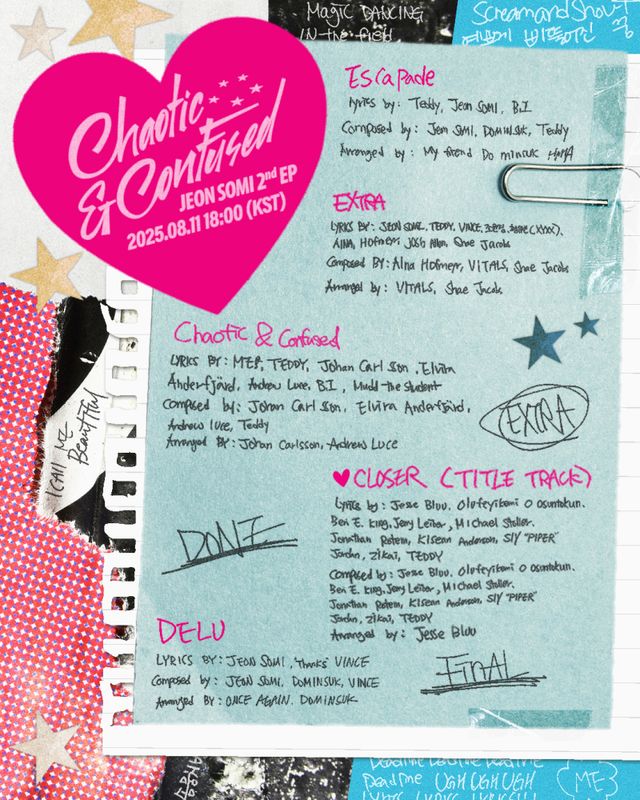 Magic DANCING
IN the field
Scream and Shout
Chaotic
& Confused
JEON SOMI 2nd EP
2025.08.11 18:00 (KST)
Escapade
lyrics by: Teddy, Jeon SOMI, B.I
Composed by: Jeon SOMI, DOMINSUK, Teddy
Arranged by: My friend Do minsuk HAHA
EXTRA
LYRICS BY: JEON SOMI, TEDDY, VINCE,
AINA, Hofmeyr, Josh Allen, Shae Jacobs
Composed BY: Aina Hofmeyr, VITALS, Shae Jacobs
Arranged by: VITALS, Shae Jacobs
Chaotic & Confused
LYRICS BY: ME!, TEDDY, Johan Carlsson, Elvira
Anderfjärd, Andrew Luce, B.I, Mudd the student
Composed by: Johan Carlsson, Elvira Anderfjärd,
Andrew luce, Teddy
Arranged BY: Johan Carlsson, Andrew Luce
EXTRA
I CAll ME
BeautifUl
CLOSER (TITLE TRACK)
Lyrics by: Jesse Bluu, Olufeyikemi O Osuntokun.
Ben E. King, Jerry Leiber, Michael Stoller.
Jonathan Rotem, Kisean Anderson, SLY "PIPER"
Jordan, Zikai, TEDDY
Composed by: Jesse Bluu, Olufeyikemi O Osuntokun.
Ben E. King, Jerry Leiber, Michael Stoller.
Jonathan Rotem, Kisean Anderson, SLY "PIPER"
Jordan, Zikai, TEDDY
Arranged by: Jesse Bluu
DONE
DELU
LYRICS BY: JEON SOMI, "thanks" VINCE
Composed by: JEON SOMI, DOMINSUK, VINCE
Arranged BY: ONCE AGAIN, DOMINSUK
FinAL
Deadline Deadline Deadline
Deadline UGH UGH UGH
(ME)